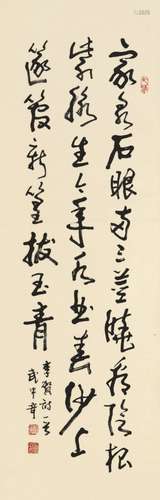 家泉石眼兩三莖曉看陰根
紫脈生今年水曲春沙上
篴管新篁拔玉青
李賀詩一首
武中奇